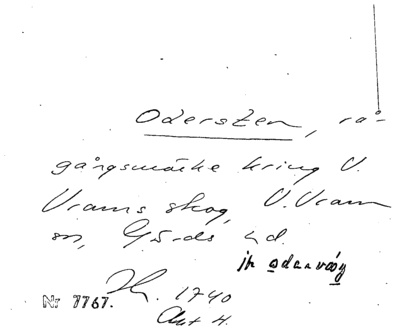 Odersten, rå-
gångsmärke kring V.
Vrams skog, V. Vram
sn, Gärds hd.
jfr odenväg
Nr 7767. 1740
Akt H.